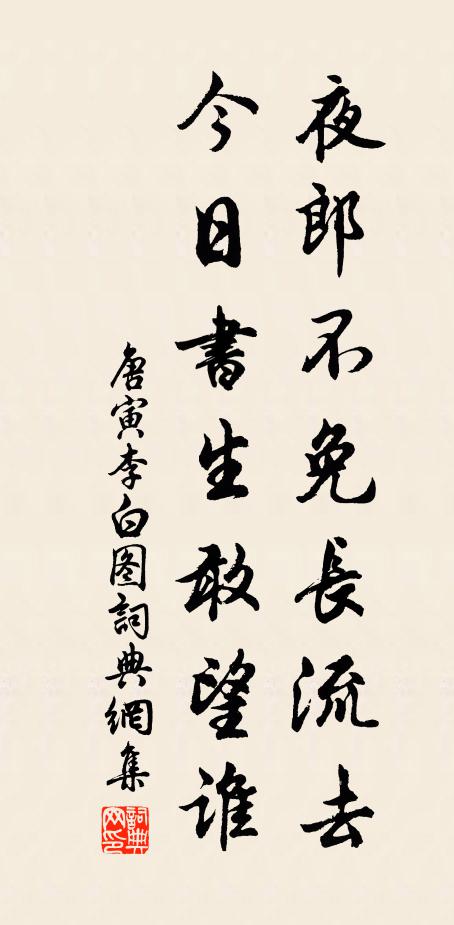 夜郎不免長流去
今日書生敢望誰
唐寅李白图詞典網集
詞典网印